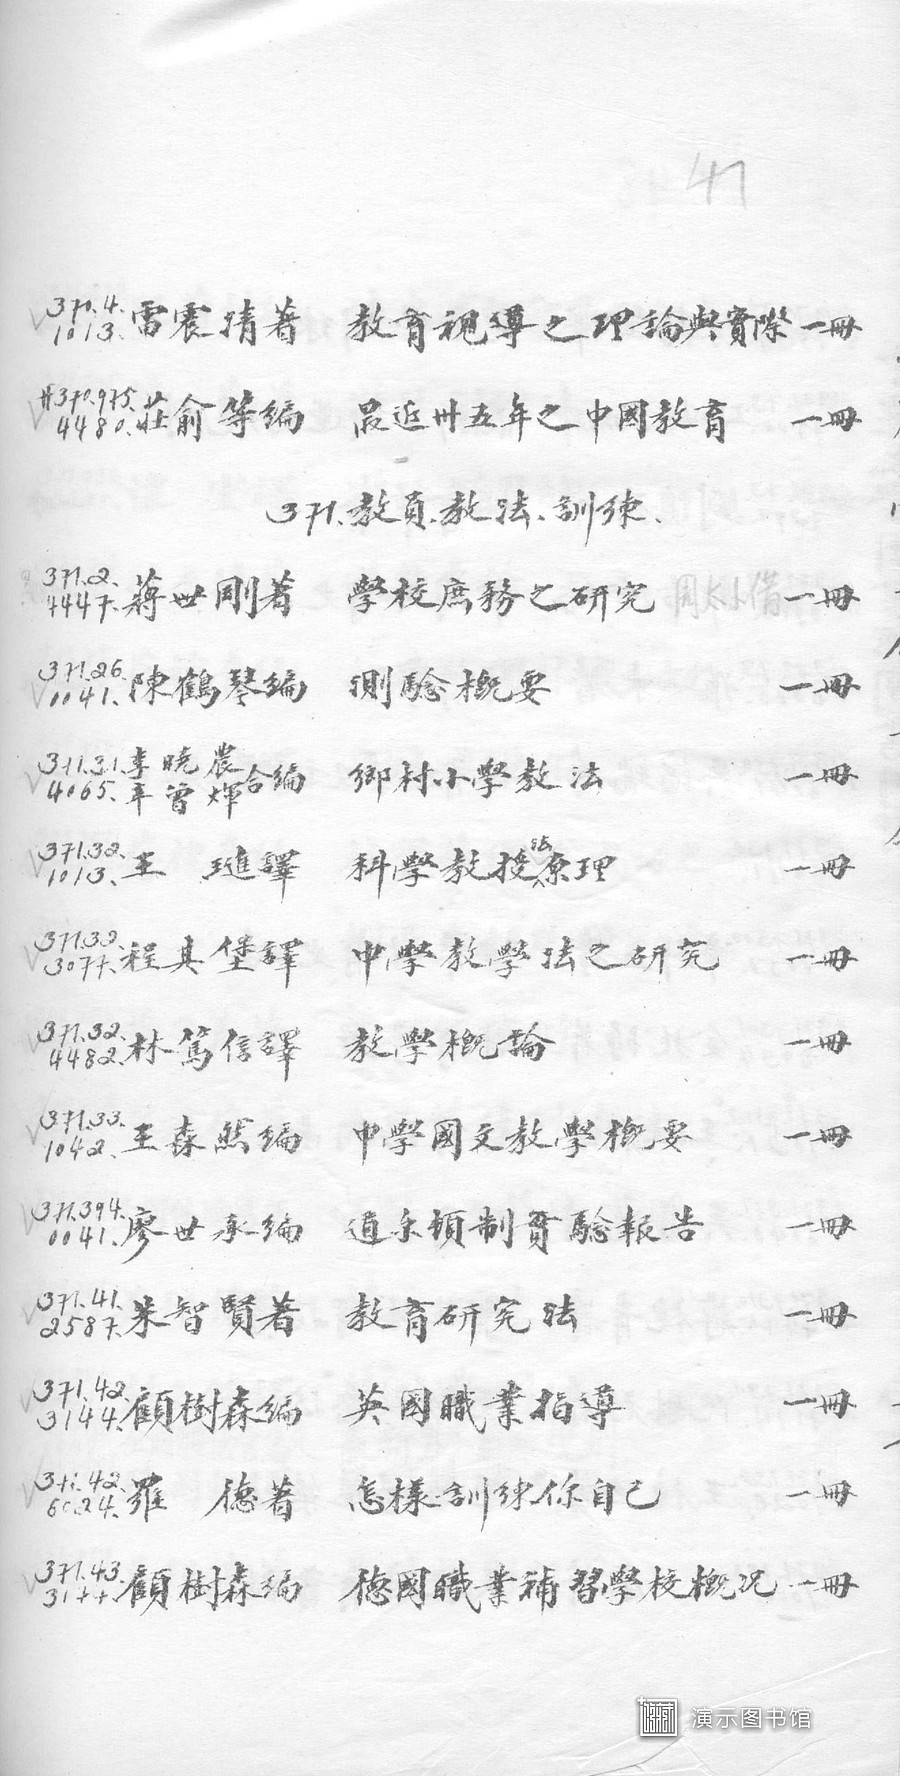 47
370.4. 1013. 雷震清著 教育視導之理論與實際 一冊
370.975. 4480. 莊俞等編 最近卅五年之中國教育 一冊
371. 教員、教法、訓練、
371.2. 4447. 蔣世剛著 學校庶務之研究 一冊
371.26 0041. 陳鶴琴編 測驗概要 一冊
371.31. 4065. 李曉農 辛曾輝 合編 鄉村小學教法 一冊
371.32. 1013. 王璡譯 科學教授法原理 一冊
371.32. 3077. 程其堡譯 中學教學法之研究 一冊
371.32. 4482. 林篤信譯 教學概論 一冊
371.33. 1042. 王森然編 中學國文教學概要 一冊
371.394. 0041. 廖世承編 道尔頓制實驗報告 一冊
371.41. 2587. 朱智賢著 教育研究法 一冊
371.42. 3144. 顧樹森編 英國職業指導 一冊
371.42. 6024. 羅德著 怎樣訓練你自己 一冊
371.43. 3144. 顧樹森編 德國職業補習學校概況 一冊
演示图书馆